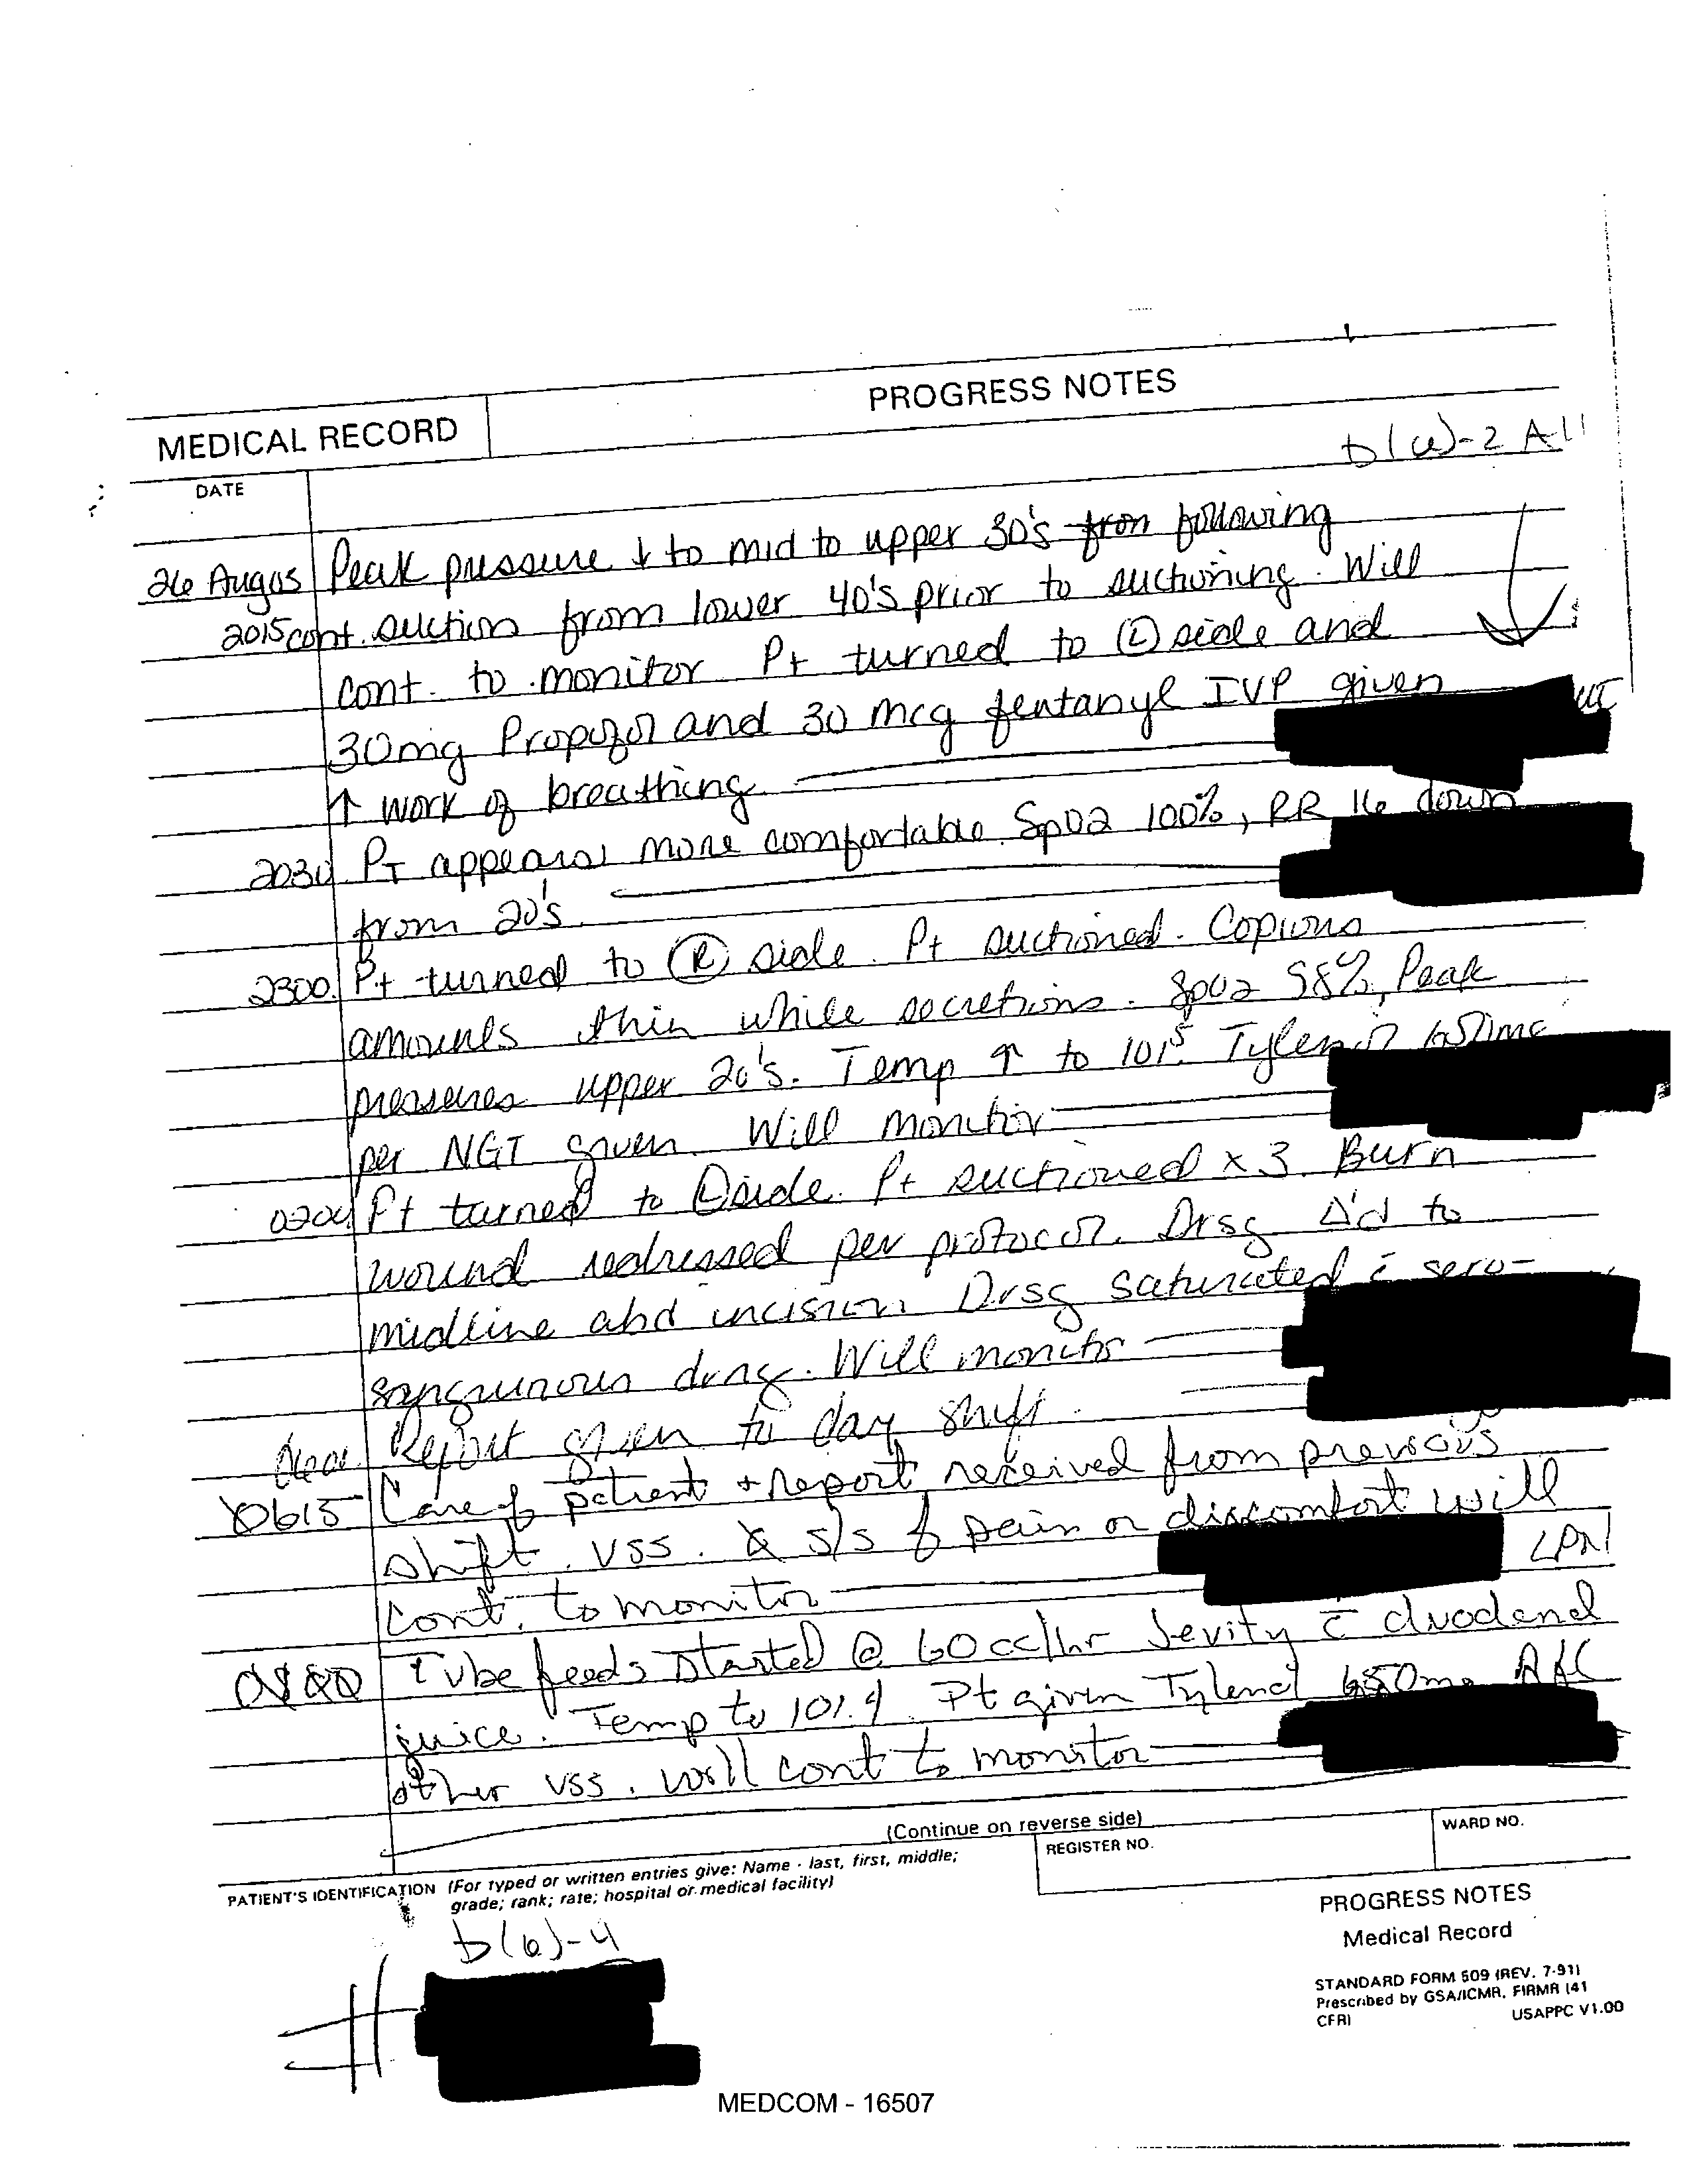 PROGRESS NOTES
MEDICAL RECORD
b(6)-2 All
DATE
26 Augus Peak pressure ↓ to mid to upper 30's from following
2015 cont. suction from lower 40's prior to suctioning. Will
cont. to monitor Pt turned to Ⓛ side and
30mg Propofol and 30 mcg fentanyl IVP given
↑ work of breathing
2030 PT appears more comfortable. SpO2 100%, RR 16 down
from 20's.
2300. Pt turned to Ⓡ side. Pt suctioned. Copious
amounts thin white secretions. SpO2 98%, Peak
pressures upper 20's. Temp ↑ to 101⁵. Tylenol 650mg
per NGT given. Will monitor
0200 Pt turned to Ⓛ side. Pt suctioned x 3. Burn
wound redressed per protocol. Drsg Δ'd to
midline abd incision. Drsg saturated c̄ sero-
sanguinous drng. Will monitor
Report given to day shift.
0615 Care of patient + report received from previous
shift. VSS. s/s of pain or discomfort will
cont. to monitor LPN
Tube feeds started @ 60cc/hr Jevity c̄ duodenal
juice. Temp to 101.4. Pt given Tylenol 650mg
other VSS. will cont to monitor
(Continue on reverse side)
PATIENT'S IDENTIFICATION (For typed or written entries give: Name - last, first, middle;
grade; rank; rate; hospital or medical facility)
REGISTER NO.
WARD NO.
b(6)-4
#
PROGRESS NOTES
Medical Record
STANDARD FORM 509 (REV. 7-91)
Prescribed by GSA/ICMR, FIRMR (41
CFR)
USAPPC V1.00
MEDCOM - 16507